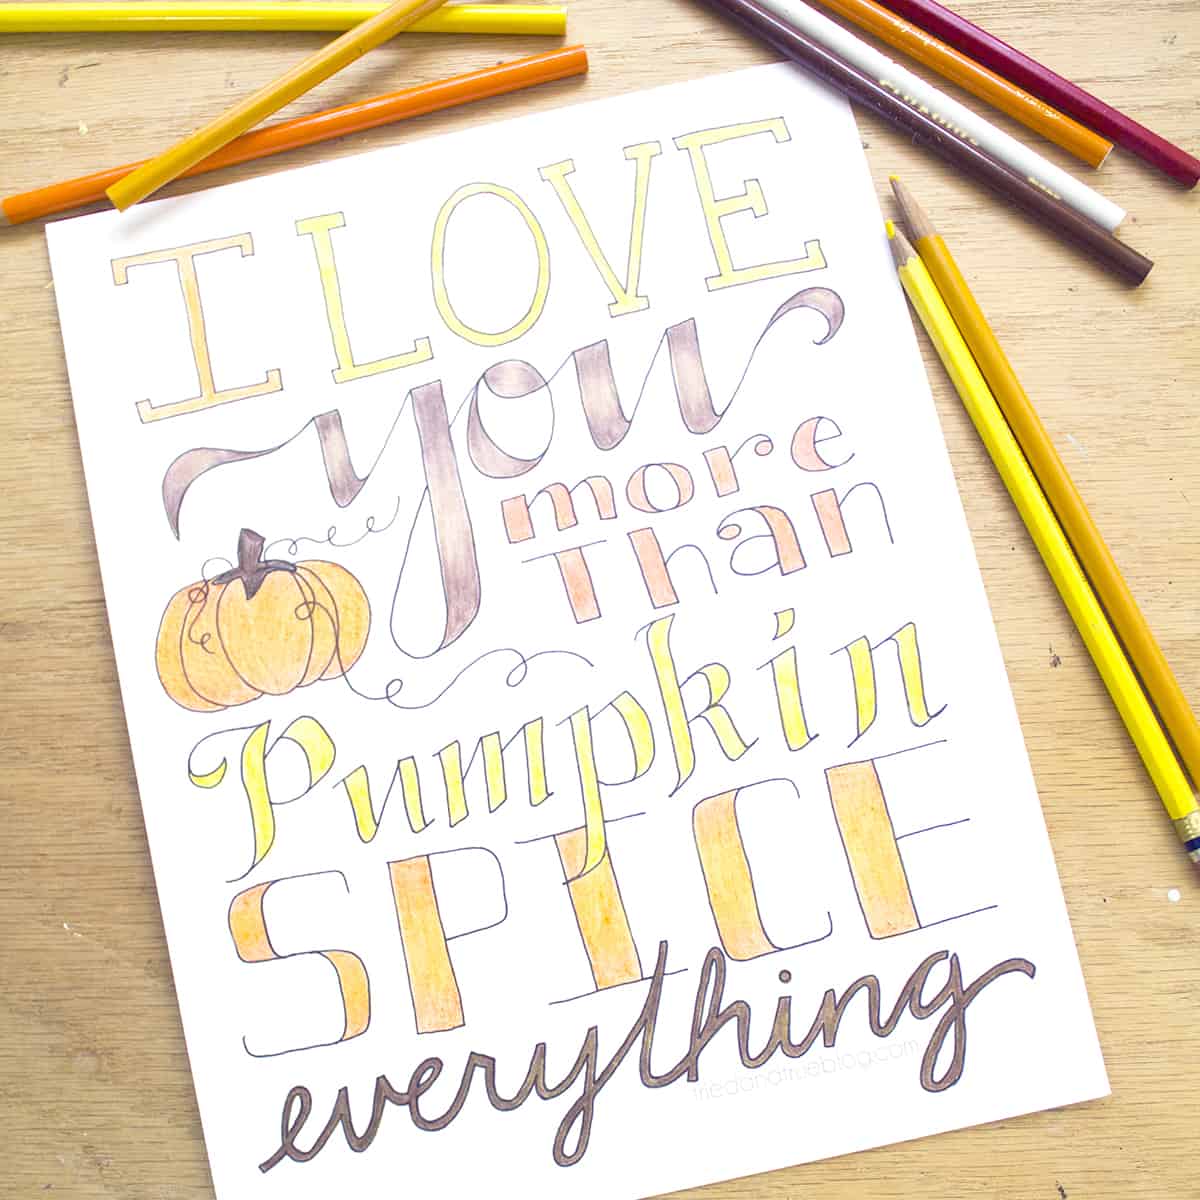 I LOVE
you
more
Than
Pumpkin
SPICE
everything
triedandtrueblog.com